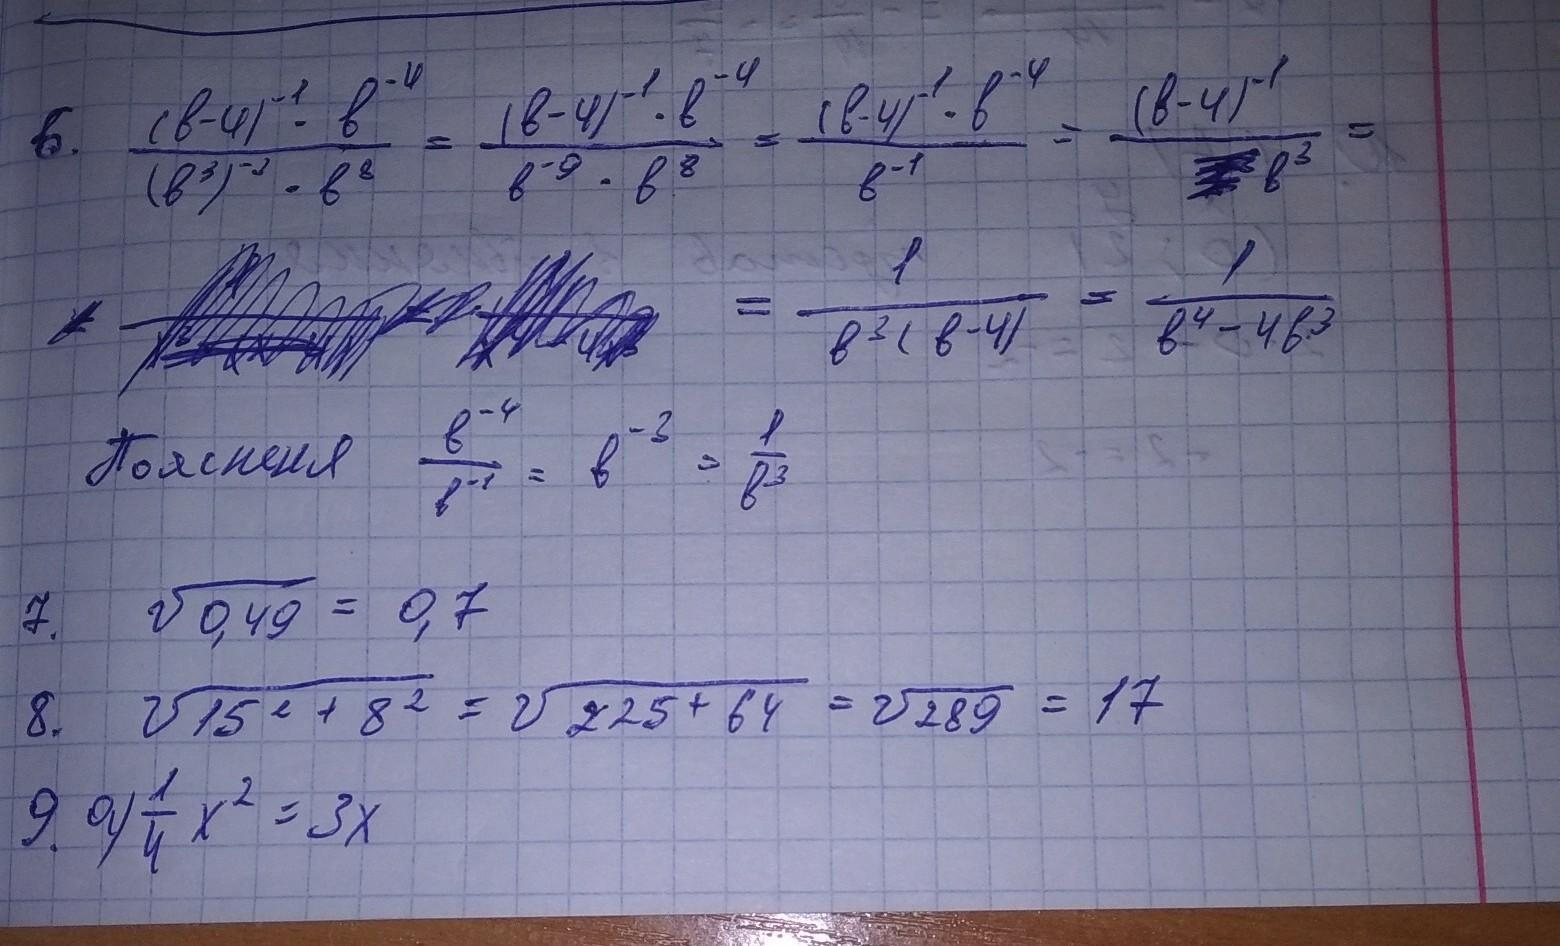 6. ((в-4)^-1 · в^-4)/((в^3)^-3 · в^8) = ((в-4)^-1 · в^-4)/(в^-9 · в^8) = ((в-4)^-1 · в^-4)/(в^-1) = ((в-4)^-1)/(в^3) =
= 1/(в^3(в-4)) = 1/(в^4-4в^3)
Пояснення в^-4/в^-1 = в^-3 = 1/в^3
7. √0,49 = 0,7
8. √15²+8² = √225+64 = √289 = 17
9. а) 1/4 x² = 3x